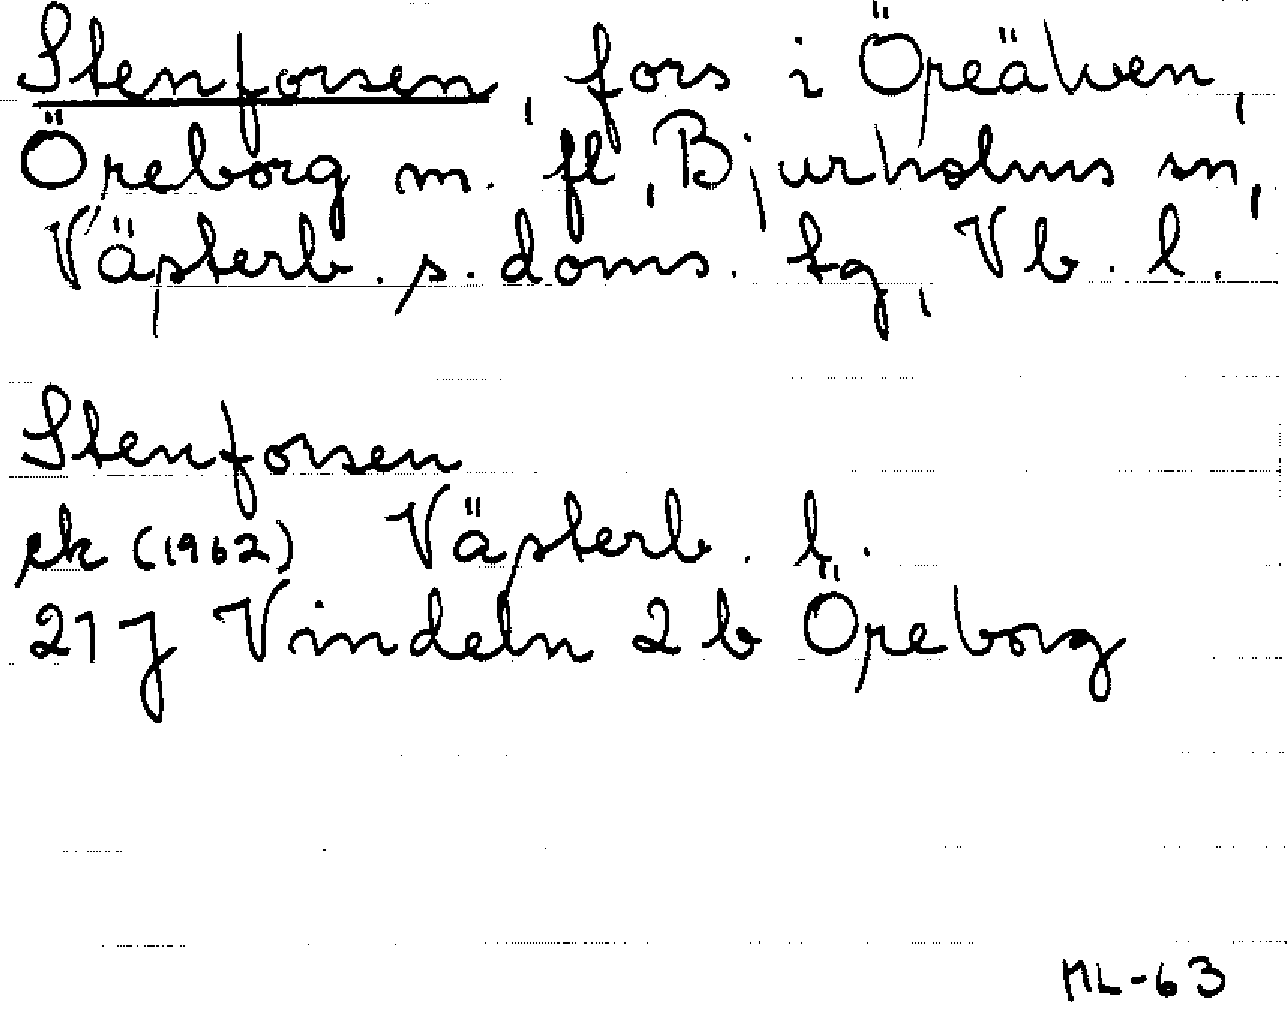 Stenforsen, fors i Öreälven,
Öreborg m. fl, Bjurholms sn,
Västerb. s. doms. tg, Vb. l.
Stenforsen
ek (1962) Västerb. l.
21J Vindeln 2b Öreborg
ML-63